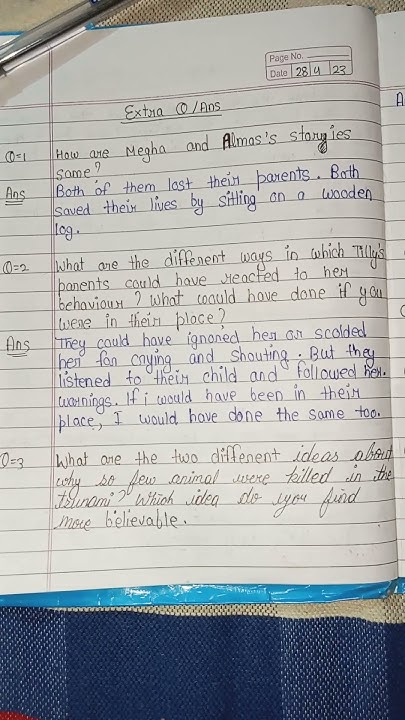 Page No.
Date 28 4 23
Extra Q/Ans
Q=1 How are Megha and Almas's storyies
same?
Ans Both of them lost their parents. Both
saved their lives by sitting on a wooden
log.
Q=2 What are the different ways in which Tilly's
parents could have reacted to her
behaviour? What could have done if you
were in their place?
Ans They could have ignored her or scolded
her for crying and shouting. But they
listened to their child and followed her.
warnings. If i would have been in their
place, I would have done the same too.
Q=3 What are the two different ideas about
why so few animal were killed in the
tsunami? Which idea do you find
more believable.
A